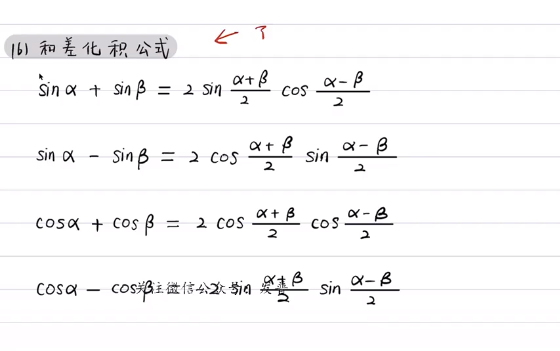 (6) 和差化积公式
sinα + sinβ = 2 sin (α+β)/2 cos (α-β)/2
sinα - sinβ = 2 cos (α+β)/2 sin (α-β)/2
cosα + cosβ = 2 cos (α+β)/2 cos (α-β)/2
cosα - cosβ 2 sin (α+β)/2 sin (α-β)/2
关注微信公众号: